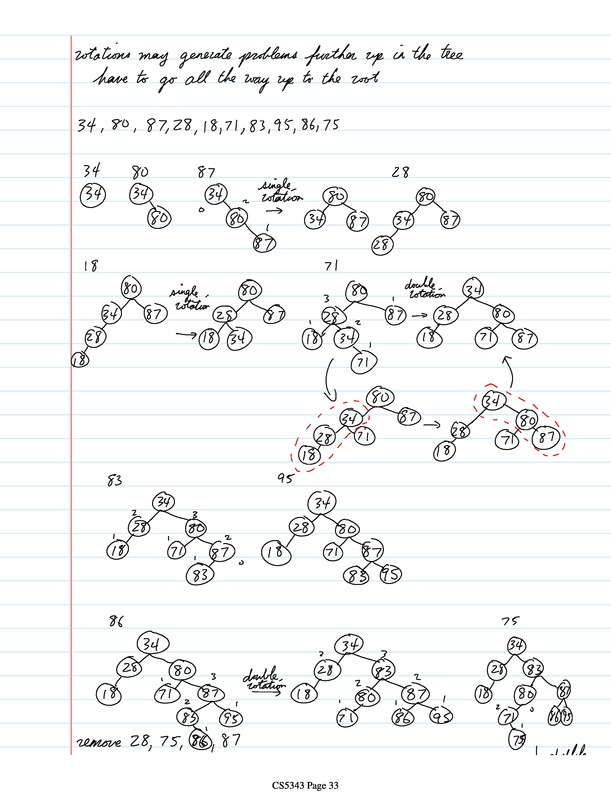 rotations may generate problems further up in the tree
have to go all the way up to the root
34, 80, 87, 28, 18, 71, 83, 95, 86, 75
34 80 87 28
34 34 34 single rotation 80 80
80 0 80 2 34 87 34 87
87 1 28
18 71
80 single rotation 80 80 double rotation 34
34 87 28 87 3 28 87 1 28 80
28 18 34 1 18 34 2 18 71 87
18 71 1
80 34
34 87 28 80
28 71 18 71 87
18
83 95
34 34
2 28 80 3 28 80
1 18 1 71 87 2 18 71 87
1 83 0 83 95
86 75
34 double rotation 34 34
28 80 2 28 83 3 28 83
18 1 71 87 3 18 2 80 87 2 18 80 87
2 83 95 1 1 71 1 86 95 1 2 71 0 86 95
86 1 75 1
remove 28, 75, 86, 87
CS5343 Page 33